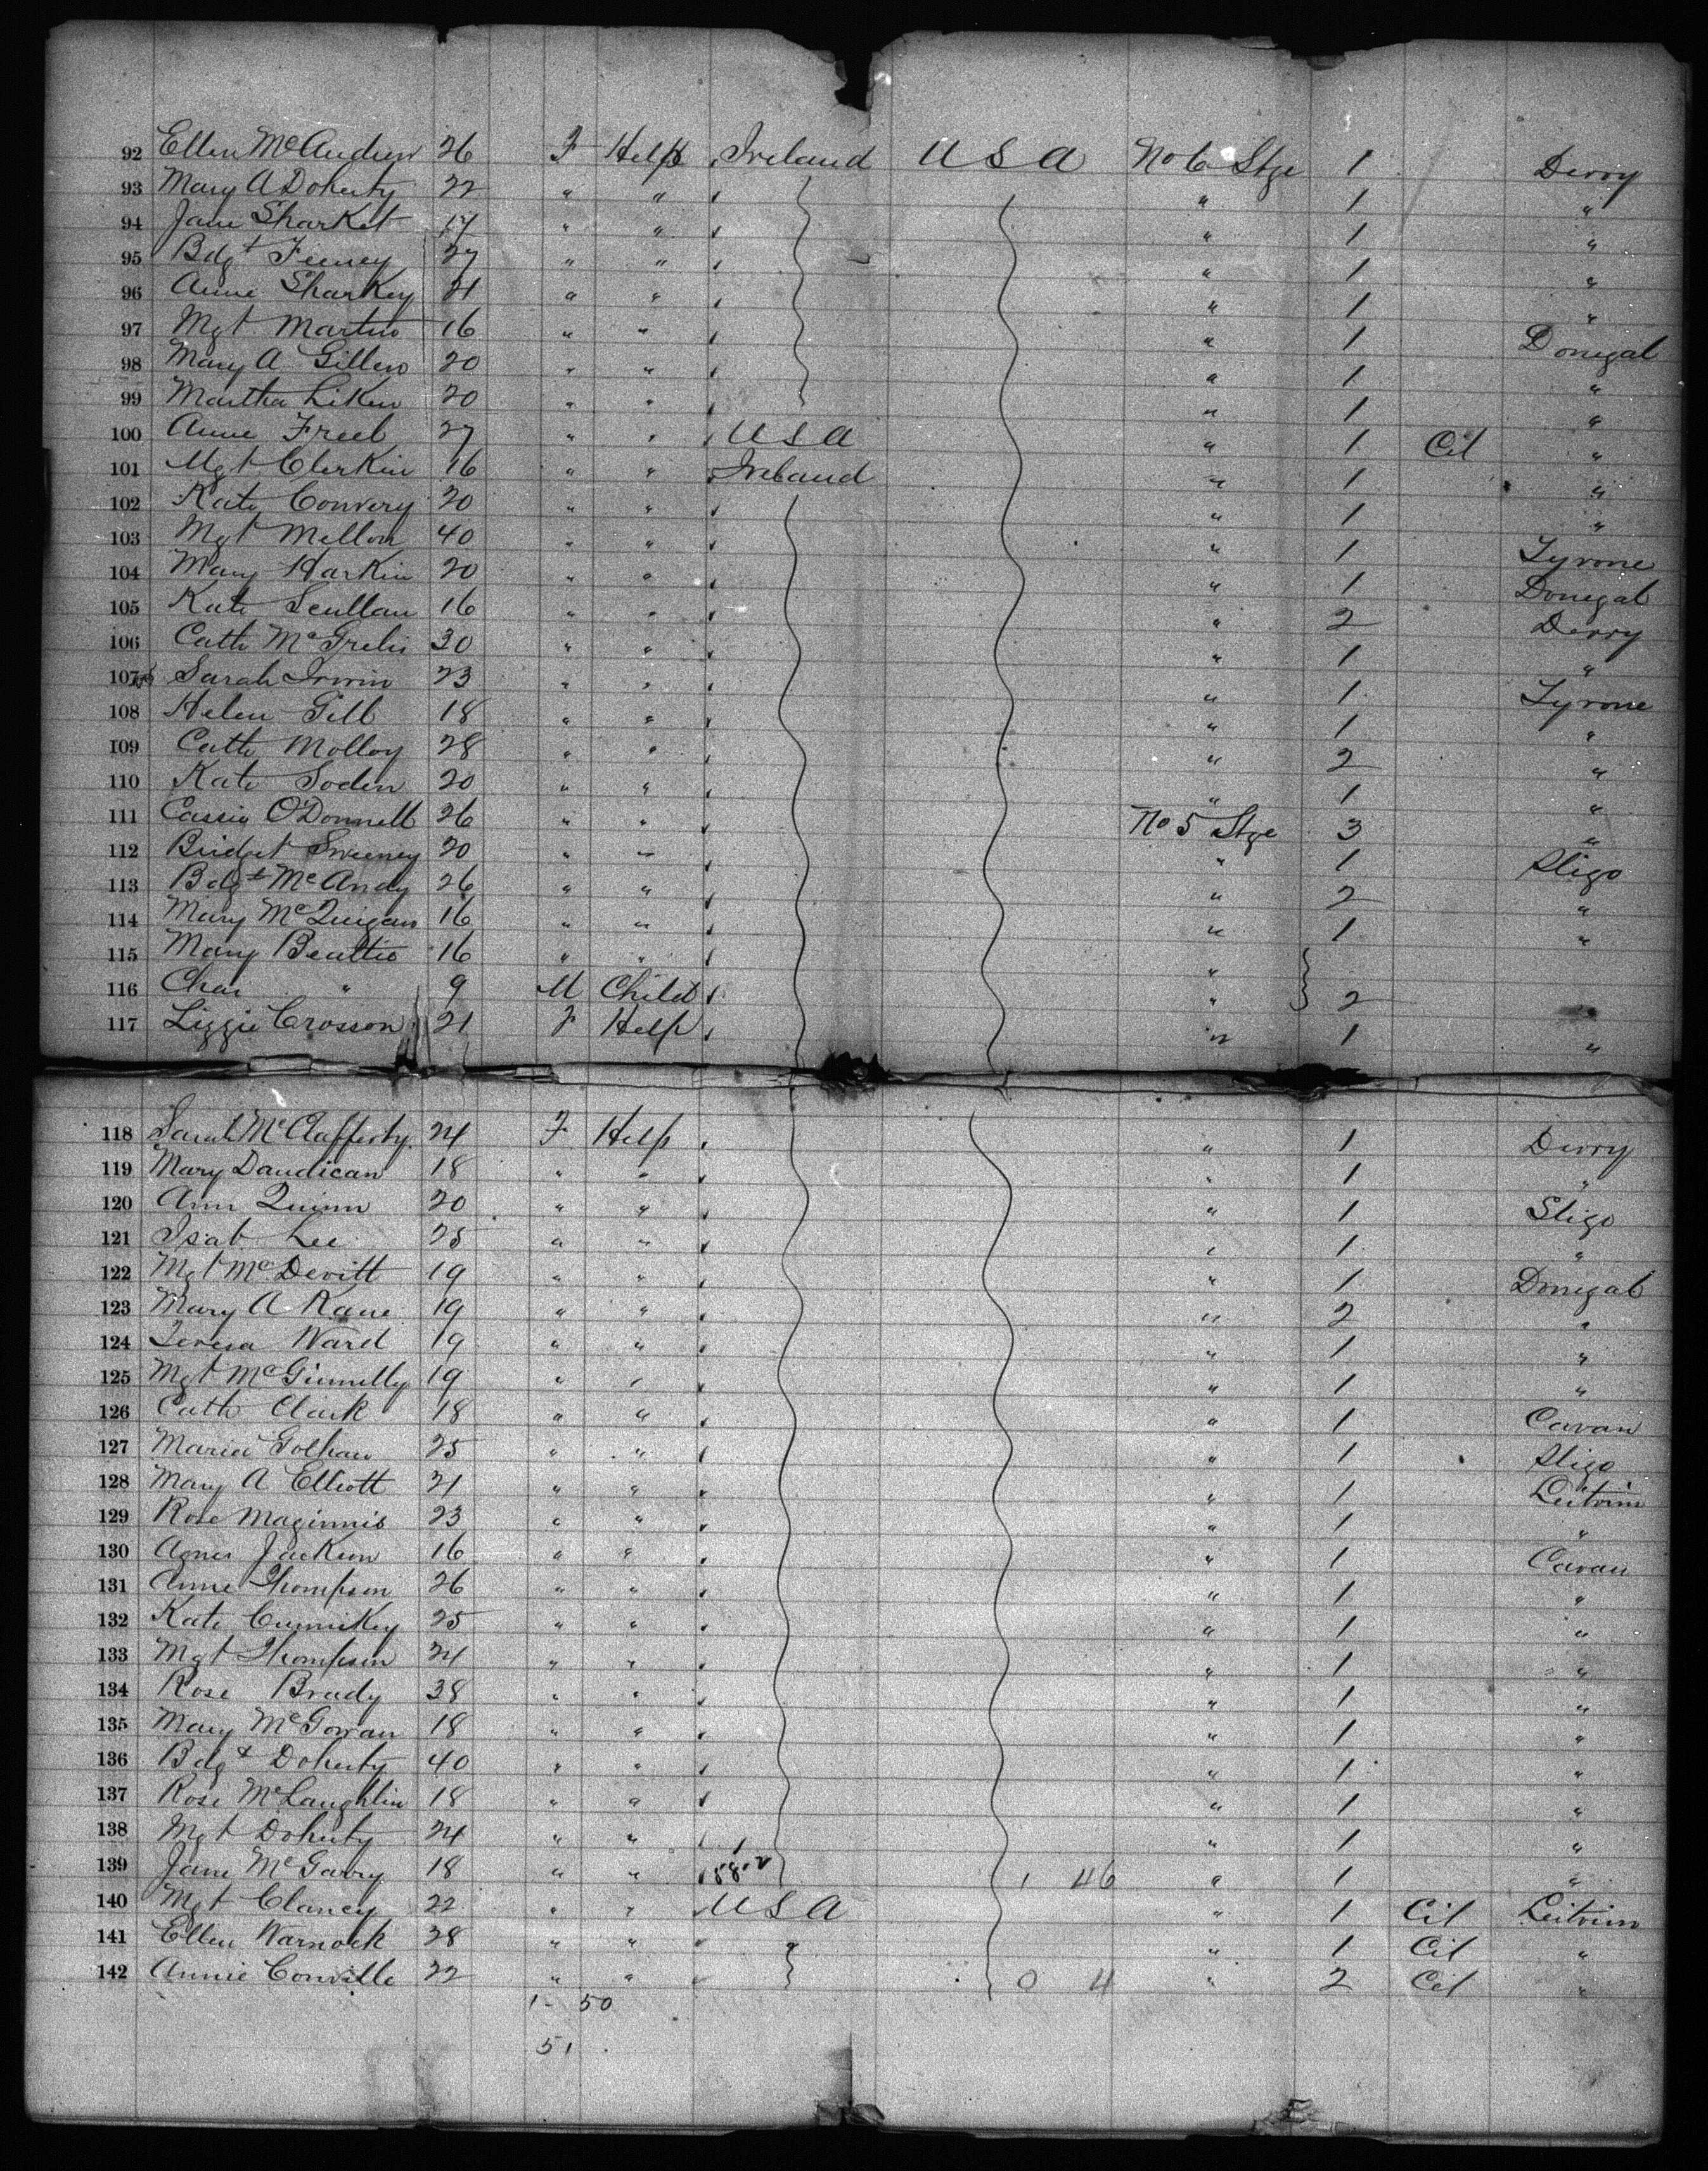 92 Ellen McAndrew 26 F Help Ireland USA No 6 Stge 1 Derry
93 Mary A Doherty 22 " " " 1 "
94 Jane Sharket 17 " " " 1 "
95 Bdgt Feeney 27 " " " 1 "
96 Anne Sharkey 21 " " " 1 "
97 Mgt Martin 16 " " " 1 Donegal
98 Mary A Gillen 20 " " " 1 "
99 Martha Liken 20 " " " 1 "
100 Anne Freel 27 " " USA " 1 Cit "
101 Mgt Clerkin 16 " " Ireland " 1 "
102 Kate Convery 20 " " " 1 "
103 Mgt Mellon 40 " " " 1 Tyrone
104 Mary Harkin 20 " " " 1 Donegal
105 Kate Scullan 16 " " " 2 Derry
106 Cath 30 " " " 1 "
107 Sarah Irwin 23 " " " 1 Tyrone
108 Helen Gill 18 " " " 1 "
109 Cath Molloy 28 " " " 2 "
110 Kate Soden 20 " " " 1 "
111 Cassie O'Donnell 26 " " No 5 Stge 3 "
112 Bridget Sweeney 20 " " " 1 Sligo
113 Bdgt McAndy 26 " " " 2 "
114 Mary McQuigan 16 " " " 1 "
115 Mary Beattie 16 " " "
116 Chas " 9 M Child " 2
117 Lizzie Crosson 21 F Help " 1 "
118 Sarah McClafferty 24 F Help " 1 Derry
119 Mary Dandican 18 " " " 1 "
120 Ann Quinn 20 " " " 1 Sligo
121 Isab Lee 25 " " " 1 "
122 Mgt McDevitt 19 " " " 1 Donegal
123 Mary A Kane 19 " " " 2 "
124 Teresa Ward 19 " " " 1 "
125 Mgt McGinnelly 19 " " " 1 "
126 Cath Clark 18 " " " 1 Cavan
127 Maria 25 " " " 1 Sligo
128 Mary A Elliott 21 " " " 1 Leitrim
129 Rose Maginnis 23 " " " 1 "
130 Agnes Jackson 16 " " " 1 Cavan
131 Anne Thompson 26 " " " 1 "
132 Kate Cumiskey 25 " " " 1 "
133 Mgt Thompson 24 " " " 1 "
134 Rose Brady 38 " " " 1 "
135 Mary McGowan 18 " " " 1 "
136 Bdgt Doherty 40 " " " 1 "
137 Rose McLaughlin 18 " " " 1 "
138 Mgt Doherty 24 " " " 1 "
139 Jane McGarry 18 " " 1 46 " 1 "
140 Mgt Clancy 22 " " USA " 1 Cit Leitrim
141 Ellen Warnock 28 " " " " 1 Cit "
142 Annie Conville 22 " " 0 4 " 2 Cit "
1- 50
51